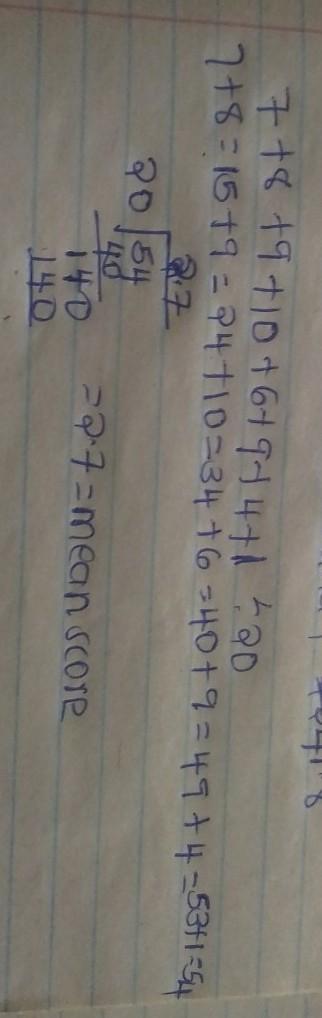 7+8+9+10+6+9+4+1 ÷20
7+8=15+9=24+10=34+6=40+9=49+4=53+1=54
2.7
20 54
40
140
140
=2.7=mean score